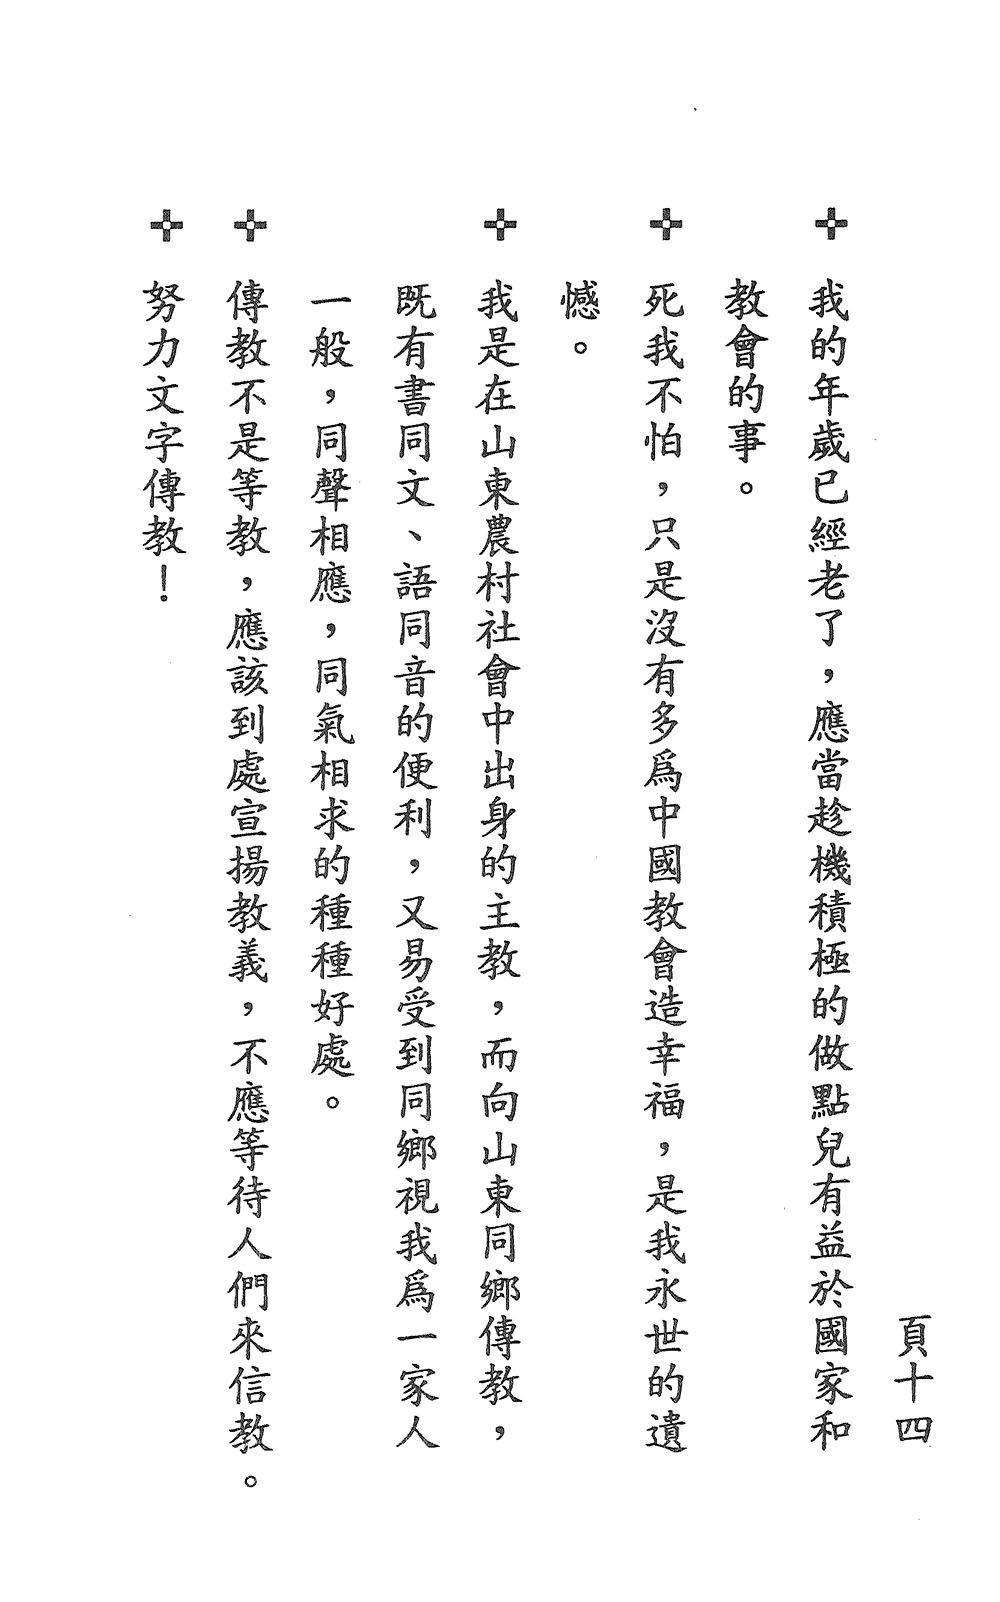 頁十四
✜ 我的年歲已經老了，應當趁機積極的做點兒有益於國家和
教會的事。
✜ 死我不怕，只是沒有多爲中國教會造幸福，是我永世的遺
憾。
✜ 我是在山東農村社會中出身的主教，而向山東同鄉傳教，
既有書同文、語同音的便利，又易受到同鄉視我爲一家人
一般，同聲相應，同氣相求的種種好處。
✜ 傳教不是等教，應該到處宣揚教義，不應等待人們來信教。
✜ 努力文字傳教！